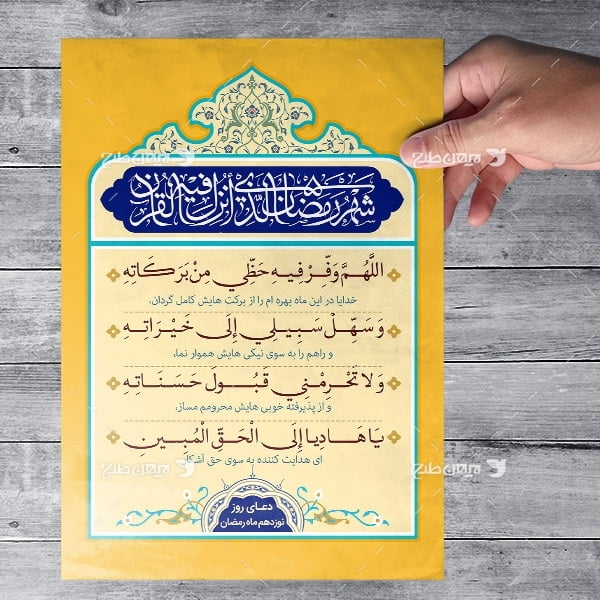 شَهْرُ رَمَضَانَ الَّذِي أُنْزِلَ فِيهِ الْقُرْآنُ
اللَّهُمَّ وَفِّرْ فِيهِ حَظِّي مِنْ بَرَكَاتِهِ
خدایا در این ماه بهره ام را از برکت هایش کامل گردان،
وَ سَهِّلْ سَبِيلِي إِلَى خَيْرَاتِهِ
و راهم را به سوی نیکی هایش هموار نما،
وَ لا تَحْرِمْنِي قَبُولَ حَسَنَاتِهِ
و از پذیرفته خوبی هایش محرومم مساز،
يَا هَادِيا إِلَى الْحَقِّ الْمُبِينِ
ای هدایت کننده به سوی حق آشکار
دعای روز
نوزدهم ماه رمضان
میهن طرح
میهن طرح
میهن طرح
میهن طرح